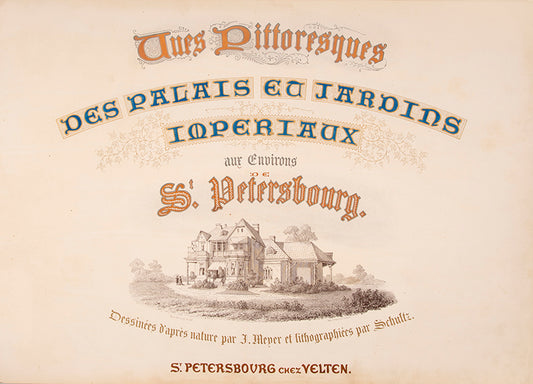 Vues Pittoresques
DES PALAIS ET JARDINS
IMPERIAUX
aux Environs
DE
St. Petersbourg.
Dessinées d'après nature par J. Meyer et lithographiées par Schultz.
St. PETERSBOURG CHEZ VELTEN.